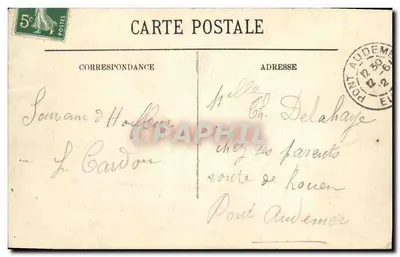 5c
CARTE POSTALE
CORRESPONDANCE
ADRESSE
PONT AUDEMER
12 30
12 -6
12
Souvenir d'Honfleur
L. Cardon
Melle
Th. Delahaye
chez ses parents
route de Rouen
Pont Audemer
CPAPHIL